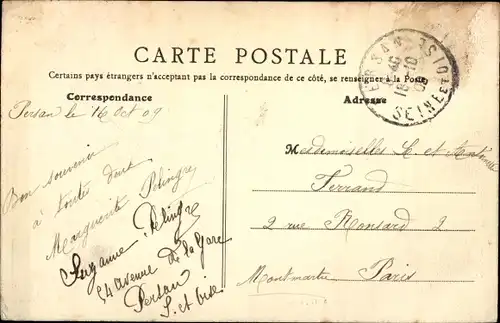 CARTE POSTALE
Certains pays étrangers n'acceptant pas la correspondance de ce côté, se renseigner à la Poste
Correspondance
Adresse
Persan le 16 Oct 09
Bon souvenir
à toutes deux
Marguerite Pelingre
Suzanne Pelingre
24 Avenue de la Gare
Persan
S. et Oise
Mesdemoiselles L. et
Ferrand
2 rue Ronsard 2
Montmartre Paris
PERSAN
SEINE ET OISE